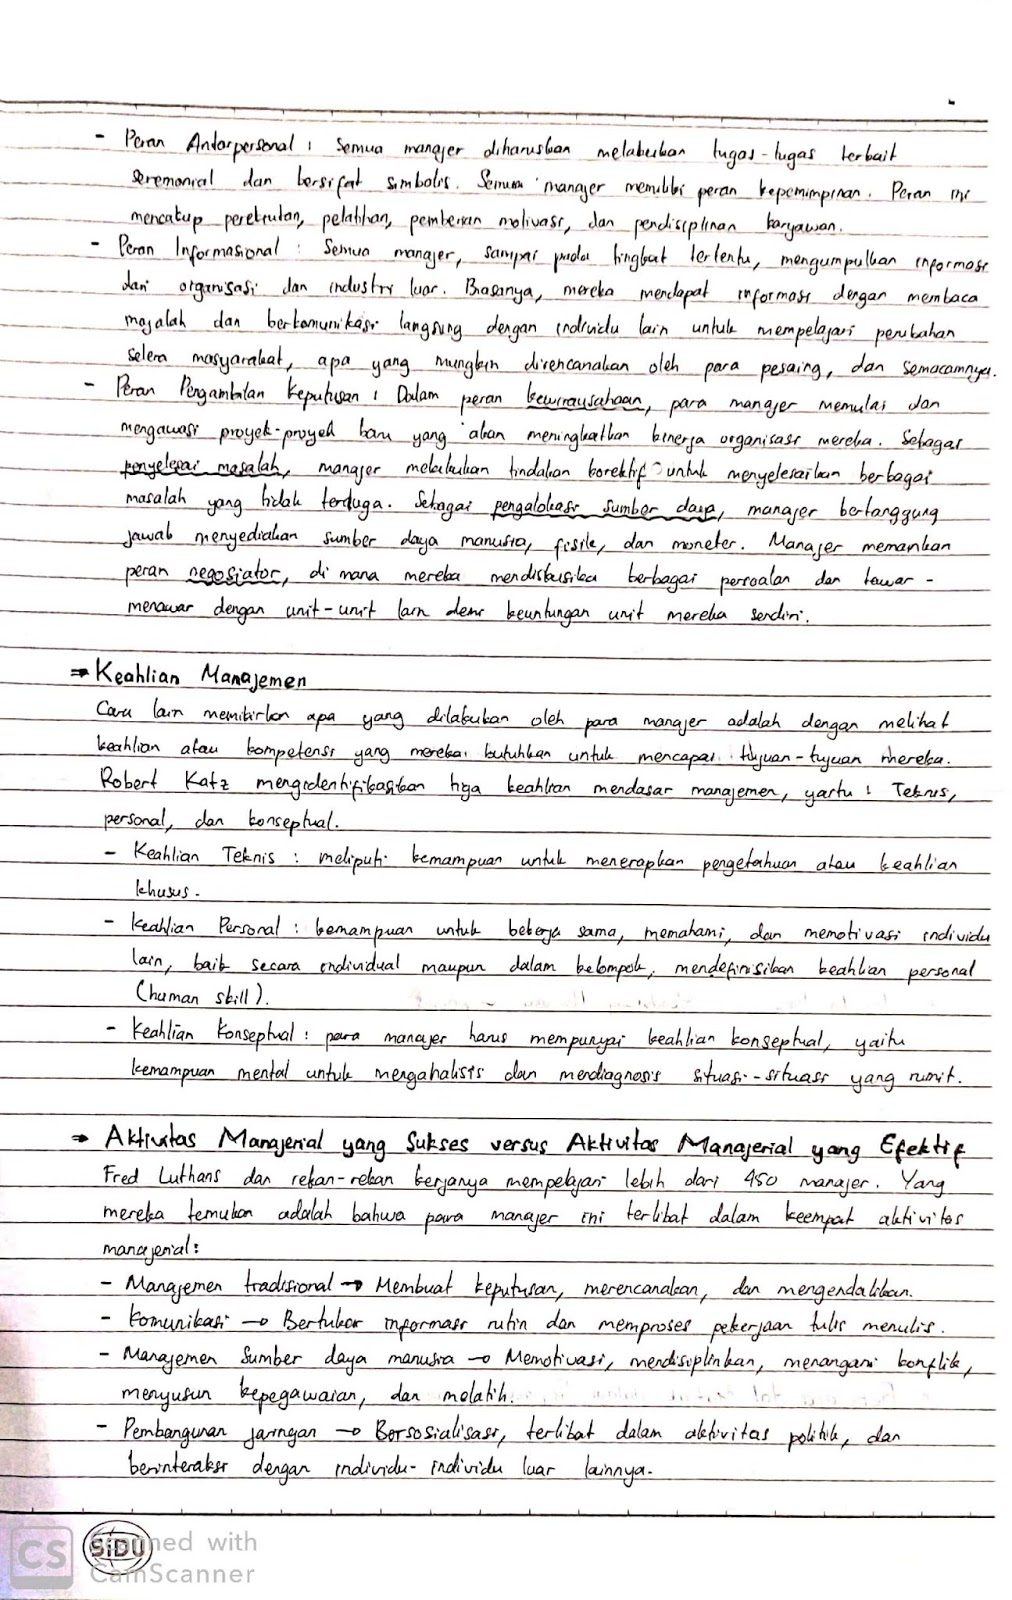 - Peran Antarpersonal : Semua manajer diharuskan melakukan tugas-tugas terkait
seremonial dan bersifat simbolis. Semua manajer memiliki peran kepemimpinan. Peran ini
mencakup perekrutan, pelatihan, pemberian motivasi, dan pendisiplinan karyawan.
- Peran Informasional : Semua manajer, sampai pada tingkat tertentu, mengumpulkan informasi
dari organisasi dan industri luar. Biasanya, mereka mendapat informasi dengan membaca
majalah dan berkomunikasi langsung dengan individu lain untuk mempelajari perubahan
selera masyarakat, apa yang mungkin direncanakan oleh para pesaing, dan semacamnya.
- Peran Pengambilan Keputusan : Dalam peran kewirausahaan, para manajer memulai dan
mengawasi proyek-proyek baru yang akan meningkatkan kinerja organisasi mereka. Sebagai
penyelesai masalah, manajer melakukan tindakan korektif untuk menyelesaikan berbagai
masalah yang tidak terduga. Sebagai pengalokasi sumber daya, manajer bertanggung
jawab menyediakan sumber daya manusia, fisik, dan moneter. Manajer memainkan
peran negosiator, di mana mereka mendiskusika berbagai persoalan dan tawar-
menawar dengan unit-unit lain demi keuntungan unit mereka sendiri.
⇒ Keahlian Manajemen
Cara lain memikirkan apa yang dilakukan oleh para manajer adalah dengan melihat
keahlian atau kompetensi yang mereka butuhkan untuk mencapai tujuan-tujuan mereka.
Robert Katz mengidentifikasikan tiga keahlian mendasar manajemen, yaitu : Teknis,
personal, dan konseptual.
- Keahlian Teknis : meliputi kemampuan untuk menerapkan pengetahuan atau keahlian
khusus.
- Keahlian Personal : kemampuan untuk bekerja sama, memahami, dan memotivasi individu
lain, baik secara individual maupun dalam kelompok, mendefinisikan keahlian personal
(human skill).
- Keahlian Konseptual : para manajer harus mempunyai keahlian konseptual, yaitu
kemampuan mental untuk menganalisis dan mendiagnosis situasi-situasi yang rumit.
⇒ Aktivitas Manajerial yang Sukses versus Aktivitas Manajerial yang Efektif
Fred Luthans dan rekan-rekan kerjanya mempelajari lebih dari 450 manajer. Yang
mereka temukan adalah bahwa para manajer ini terlibat dalam keempat aktivitas
manajerial:
- Manajemen tradisional → Membuat keputusan, merencanakan, dan mengendalikan.
- Komunikasi → Bertukar informasi rutin dan memproses pekerjaan tulis menulis.
- Manajemen Sumber daya manusia → Memotivasi, mendisiplinkan, menangani konflik,
menyusun kepegawaian, dan melatih.
- Pembangunan jaringan → Bersosialisasi, terlibat dalam aktivitas politik, dan
berinteraksi dengan individu-individu luar lainnya.
SiDU
CS Scanned with
CamScanner